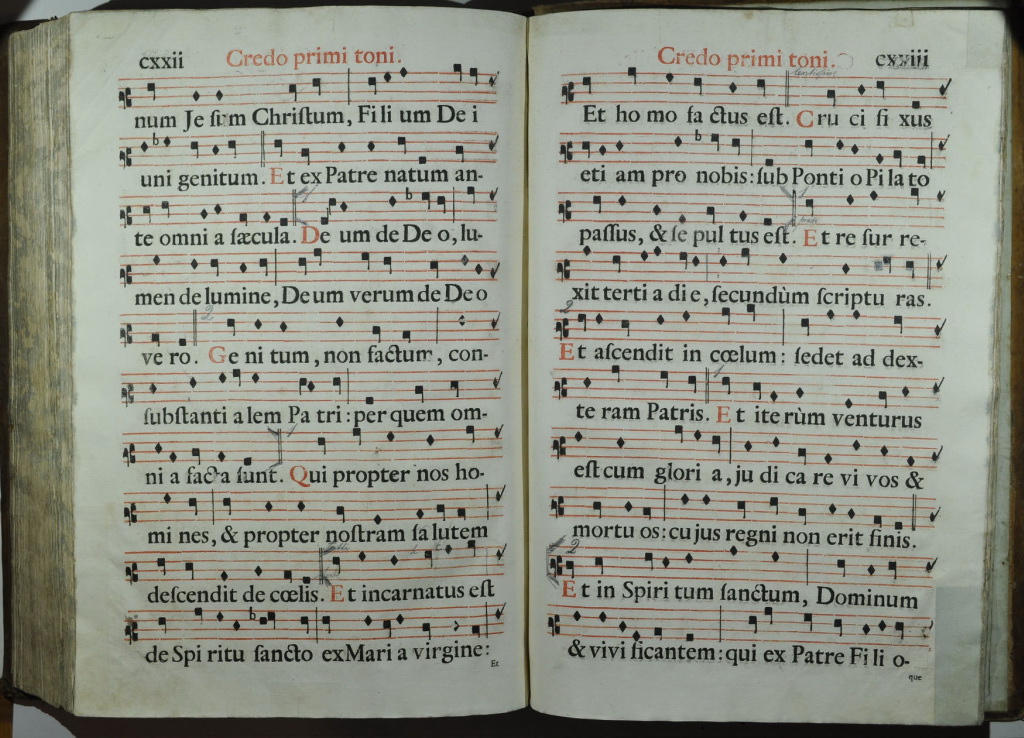 cxxii Credo primi toni.
num Je sum Chriſtum, Fi li um De i
uni genitum. Et ex Patre natum an-
te omni a ſæcula. De um de De o, lu-
men de lumine, De um verum de De o
ve ro. Ge ni tum, non factum, con-
ſubſtanti alem Pa tri: per quem om-
ni a facta ſunt. Qui propter nos ho-
mi nes, & propter noſtram ſa lutem
deſcendit de cœlis. Et incarnatus eſt
de Spi ritu ſancto ex Mari a virgine:
Et
Credo primi toni. cxxiii
Et ho mo fa ctus eſt. Cru ci fi xus
eti am pro nobis: ſub Ponti o Pi la to
paſſus, & ſe pul tus eſt. Et re ſur re-
xit terti a di e, ſecundùm ſcriptu ras.
Et aſcendit in cœlum: ſedet ad dex-
te ram Patris. Et ite rùm venturus
eſt cum glori a, ju di ca re vi vos &
mortu os: cu jus regni non erit finis.
Et in Spiri tum ſanctum, Dominum
& vivi ficantem: qui ex Patre Fi li o-
que